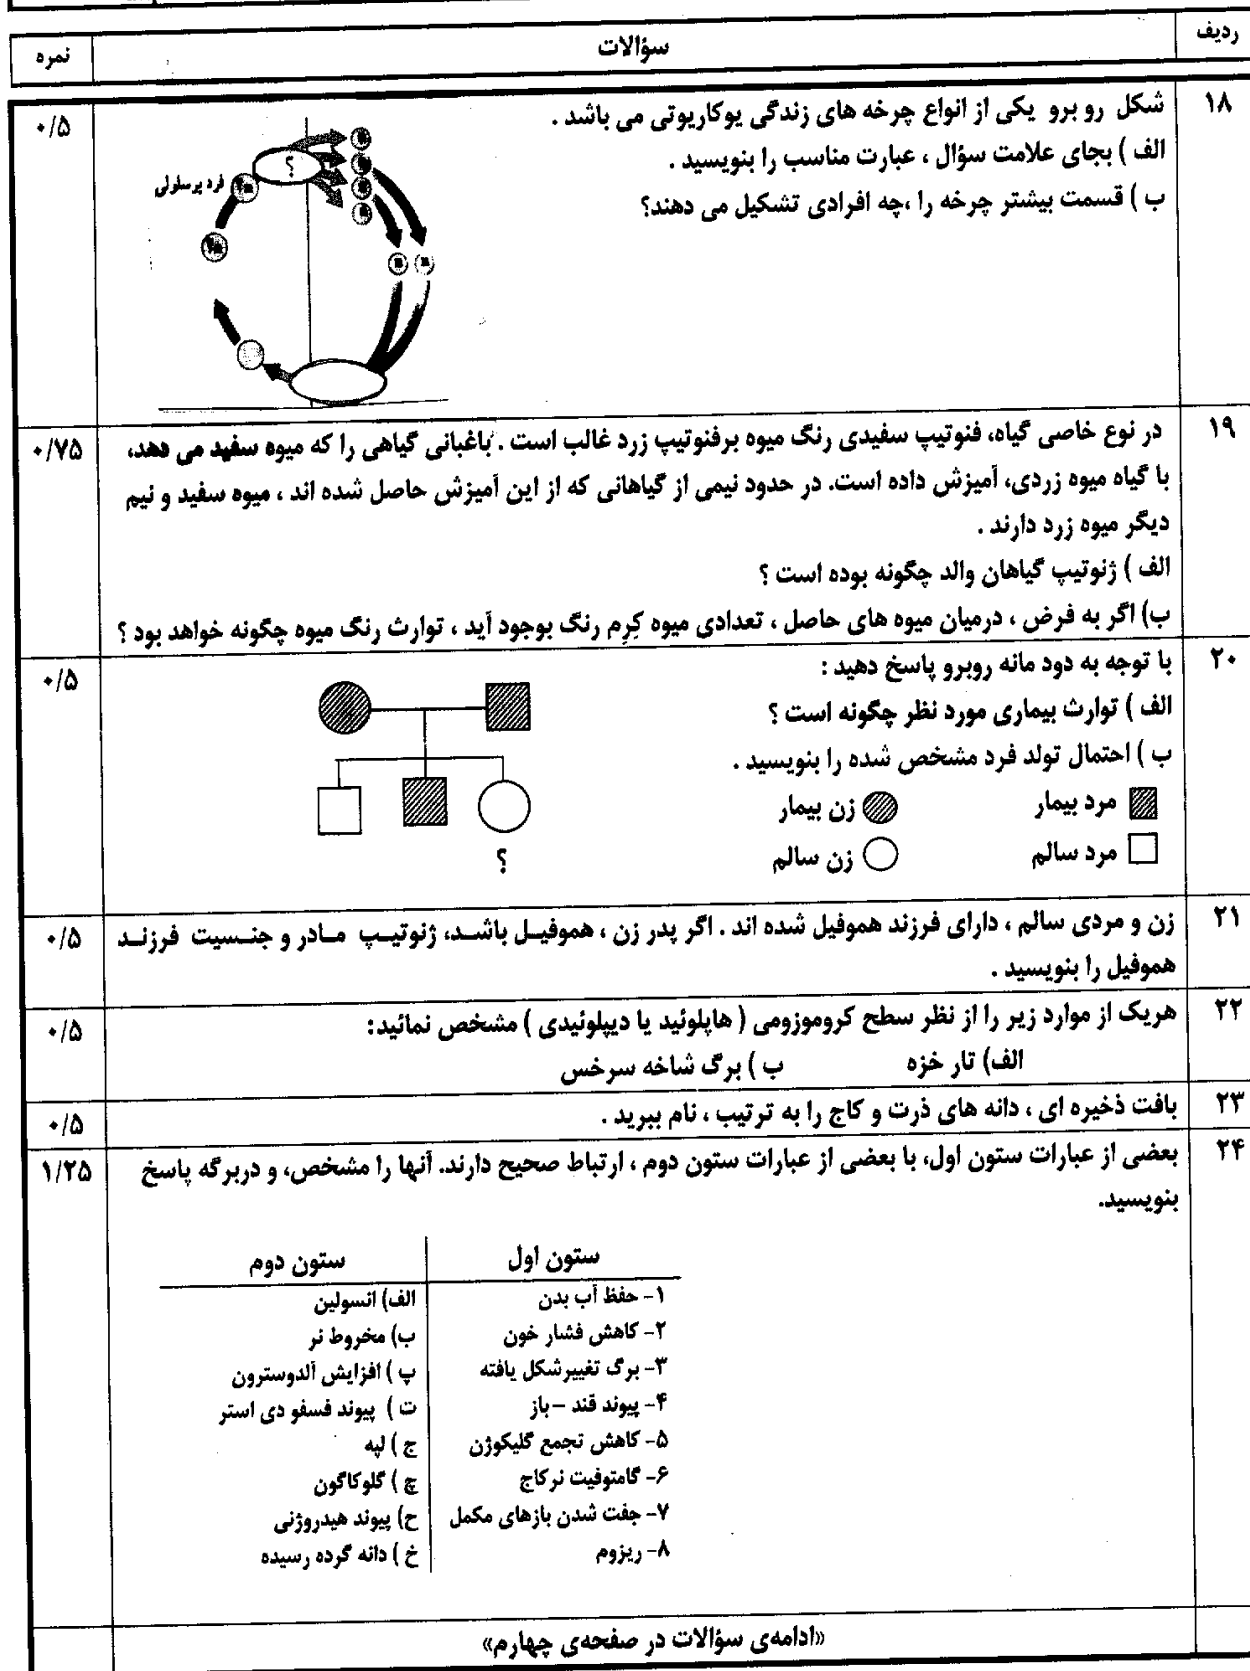 ردیف
سؤالات
نمره
۱۸
شکل رو برو یکی از انواع چرخه های زندگی یوکاریوتی می باشد .
۰/۵
الف ) بجای علامت سؤال ، عبارت مناسب را بنویسید .
ب ) قسمت بیشتر چرخه را ،چه افرادی تشکیل می دهند؟
؟
فرد پرسلولی
۲n
۲n
n
n
n
n
n
n
۱۹
در نوع خاصی گیاه، فنوتیپ سفیدی رنگ میوه برفنوتیپ زرد غالب است . باغبانی گیاهی را که میوه سفید می دهد،
۰/۷۵
با گیاه میوه زردی، آمیزش داده است. در حدود نیمی از گیاهانی که از این آمیزش حاصل شده اند ، میوه سفید و نیم
دیگر میوه زرد دارند .
الف ) ژنوتیپ گیاهان والد چگونه بوده است ؟
ب) اگر به فرض ، درمیان میوه های حاصل ، تعدادی میوه کِرِم رنگ بوجود آید ، توارث رنگ میوه چگونه خواهد بود ؟
۲۰
با توجه به دود مانه روبرو پاسخ دهید :
۰/۵
الف ) توارث بیماری مورد نظر چگونه است ؟
ب ) احتمال تولد فرد مشخص شده را بنویسید .
مرد بیمار
زن بیمار
مرد سالم
زن سالم
؟
۲۱
زن و مردی سالم ، دارای فرزند هموفیل شده اند . اگر پدر زن ، هموفیـل باشـد، ژنوتیـپ مـادر و جنـسیت فرزنـد
۰/۵
هموفیل را بنویسید .
۲۲
هریک از موارد زیر را از نظر سطح کروموزومی ( هاپلوئید یا دیپلوئیدی ) مشخص نمائید:
۰/۵
الف) تار خزه
ب ) برگ شاخه سرخس
۲۳
بافت ذخیره ای ، دانه های ذرت و کاج را به ترتیب ، نام ببرید .
۰/۵
۲۴
بعضی از عبارات ستون اول، با بعضی از عبارات ستون دوم ، ارتباط صحیح دارند. آنها را مشخص، و دربرگه پاسخ
۱/۲۵
بنویسید.
ستون اول
ستون دوم
۱- حفظ آب بدن
الف) انسولین
۲- کاهش فشار خون
ب) مخروط نر
۳- برگ تغییرشکل یافته
پ ) افزایش آلدوسترون
۴- پیوند قند –باز
ت ) پیوند فسفو دی استر
۵- کاهش تجمع گلیکوژن
ج ) لپه
۶- گامتوفیت نرکاج
چ ) گلوکاگون
۷- جفت شدن بازهای مکمل
ح) پیوند هیدروژنی
۸- ریزوم
خ ) دانه گرده رسیده
«ادامه‌ی سؤالات در صفحه‌ی چهارم»